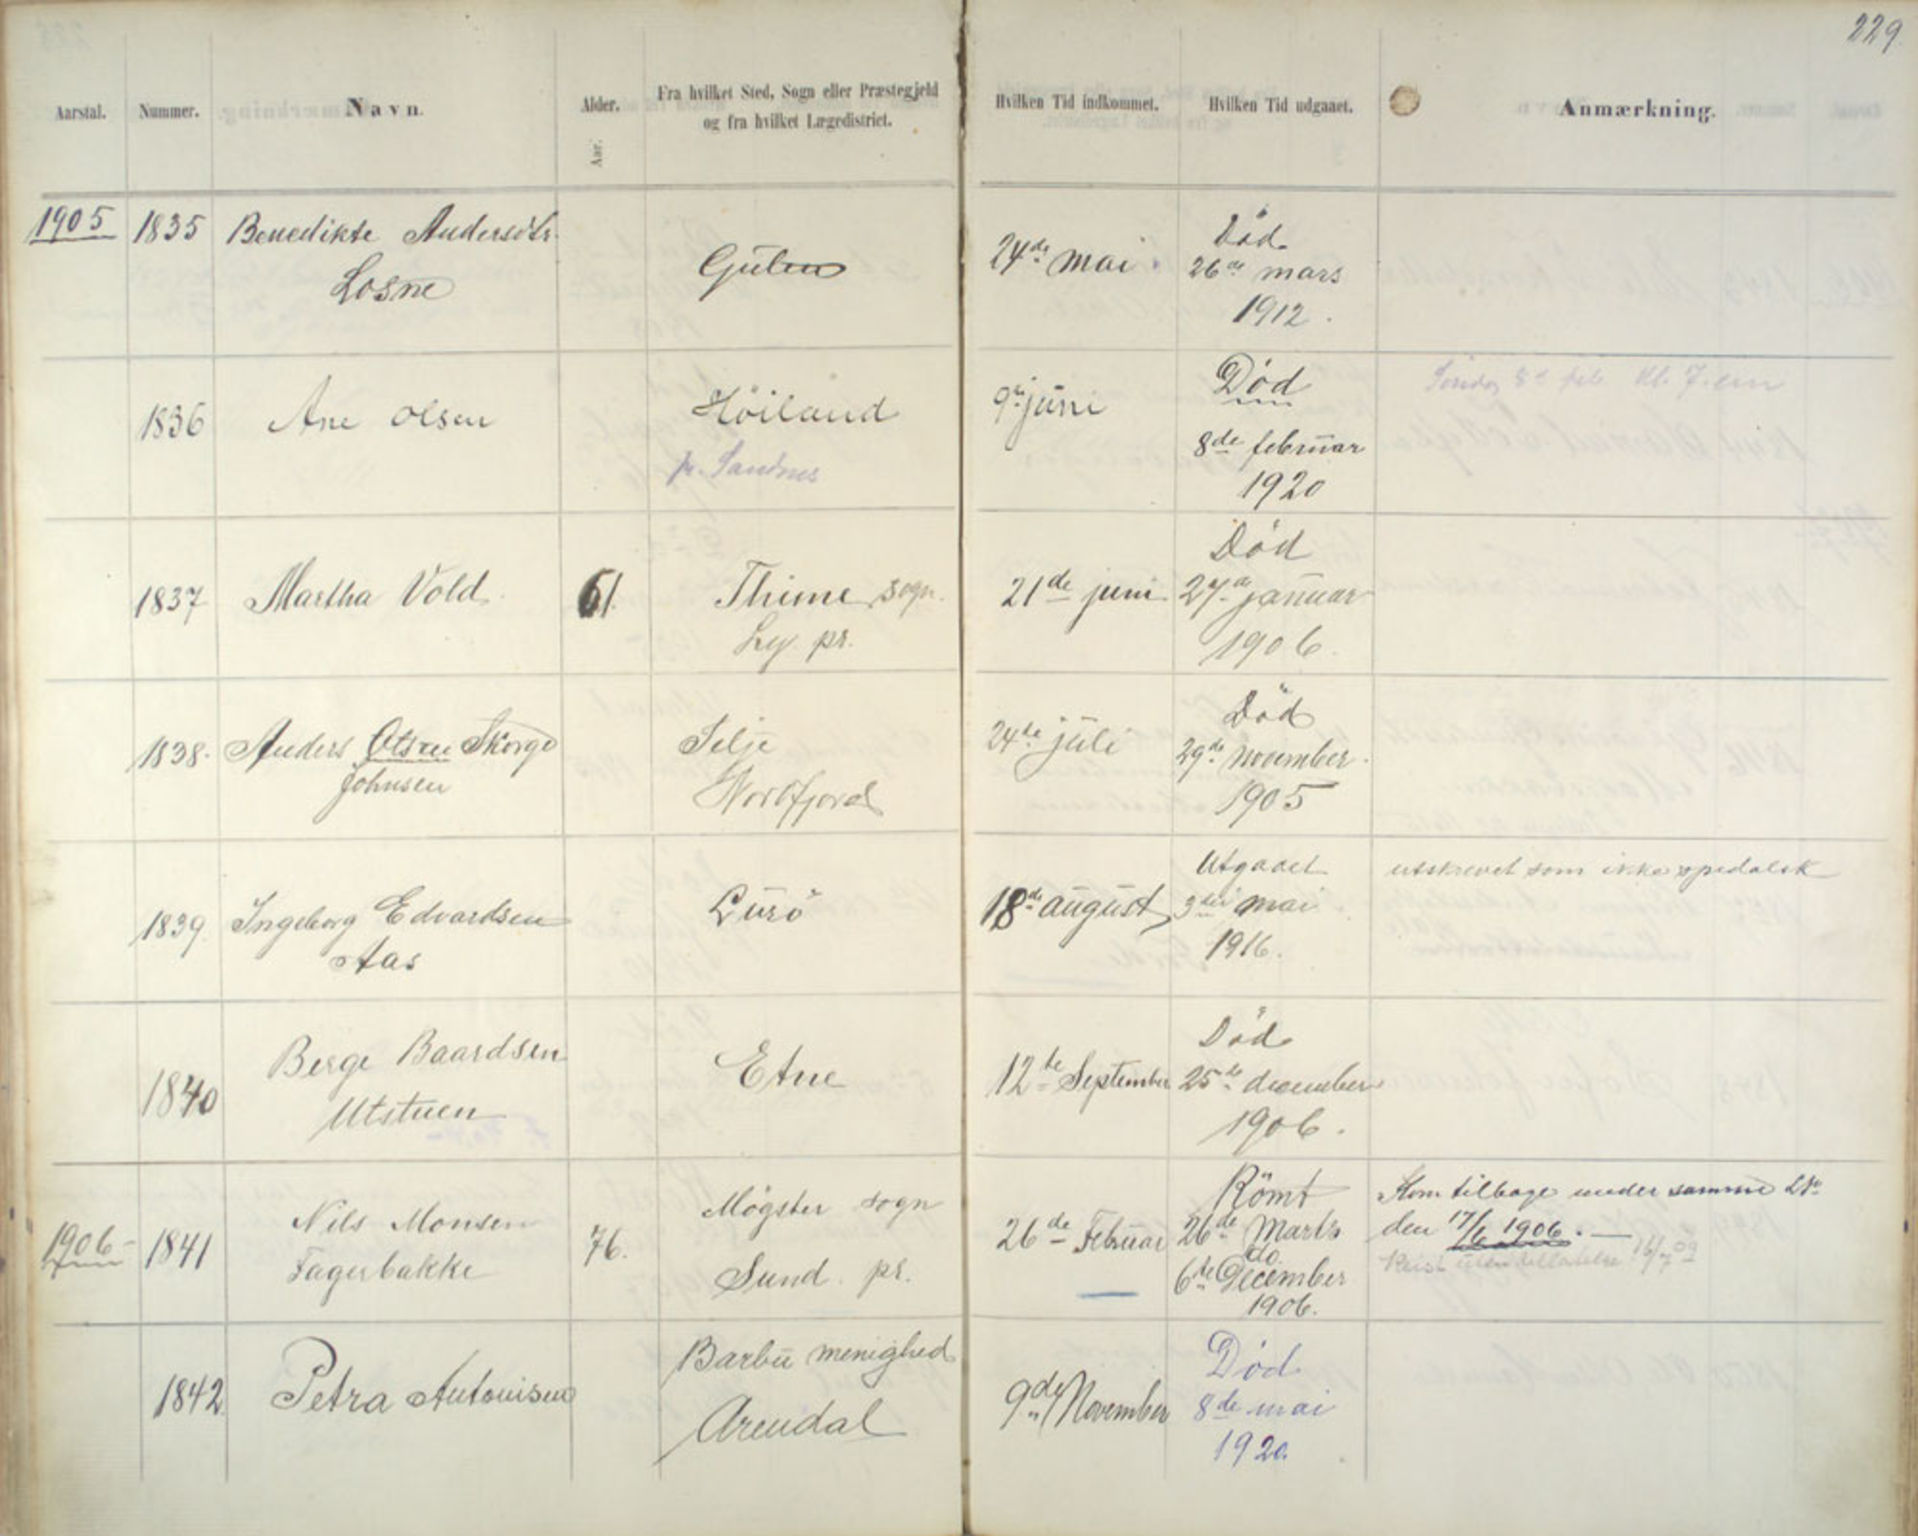 229
Aarstal. Nummer. Navn. Alder. Aar. Fra hvilket Sted, Sogn eller Præstegjeld
og fra hvilket Lægedistrict.
Hvilken Tid indkommet. Hvilken Tid udgaaet. Anmærkning.
1905 1835 Benedikte Andersdtr. Gulen 24de mai Død
Losne 26de mars
1912.
1836 Ane Olsen Höiland 9de juni Död Söndag 8de feb. kl. 7. em
pr. Sandnes 8de februar
1920
1837 Martha Vold 61. Thime sogn. 21de juni Död
Ly pr. 27de januar
1906.
1838. Anders Olsen Skorge Selje 24de juli Död
Johnsen Nordfjord 29de november
1905
1839. Ingeborg Edvardsen Lurö 18de august Utgaaet utskrevet som ikke spedalsk
Aas 3die mai
1916.
1840 Berge Baardsen Etne 12te September Död
Utstuen 25de december
1906.
1906 1841 Nils Monsen 76. Mögster sogn 26de Februar Römt Kom tilbage under samme No
Fagerbakke Sund pr. 26de Marts den 17/6 1906.
do. Reist uten tilladelse 16/7 09
6te December
1906.
1842 Petra Antonisen Barbu menighed 9de November Död
Arendal 8de mai
1920